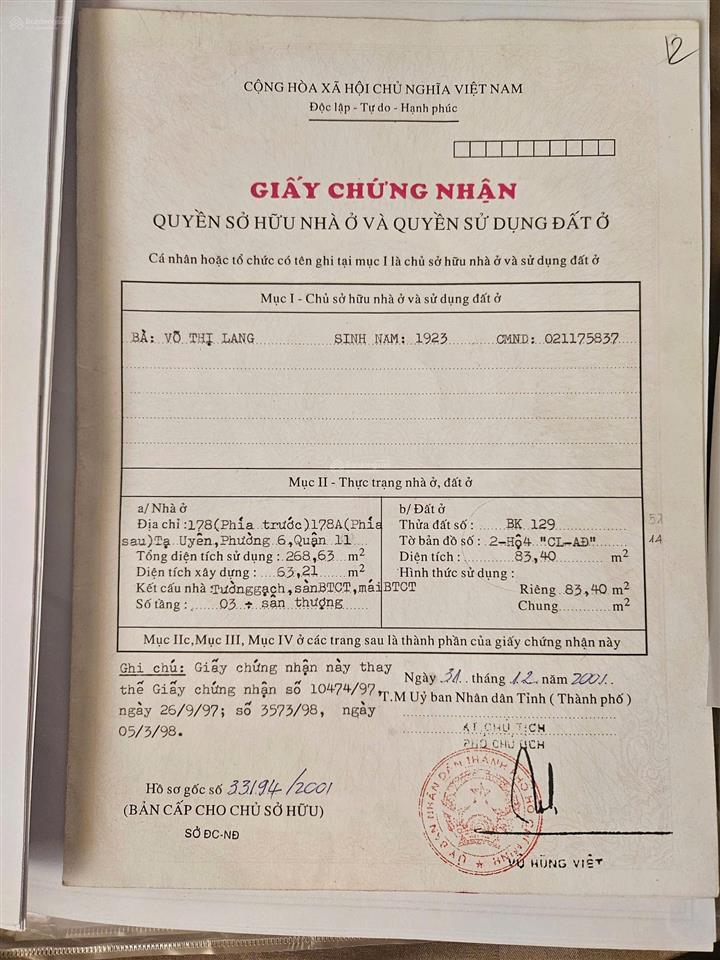 12
CỘNG HÒA XÃ HỘI CHỦ NGHĨA VIỆT NAM
Độc lập - Tự do - Hạnh phúc
GIẤY CHỨNG NHẬN
QUYỀN SỞ HỮU NHÀ Ở VÀ QUYỀN SỬ DỤNG ĐẤT Ở
Cá nhân hoặc tổ chức có tên ghi tại mục I là chủ sở hữu nhà ở và sử dụng đất ở
Mục I - Chủ sở hữu nhà ở và sử dụng đất ở
BÀ: VÕ THỊ LANG SINH NAM: 1923 CMND: 021175837
Mục II - Thực trạng nhà ở, đất ở
a/ Nhà ở
Địa chỉ :178(Phía trước)178A(Phía
sau)Tạ Uyên,Phường 6,Quận 11
Tổng diện tích sử dụng : 268,63 m²
Diện tích xây dựng : 63,21 m²
Kết cấu nhà :Tườnggạch,sànBTCT,máiBTCT
Số tầng : 03 + sân thượng
b/ Đất ở
Thửa đất số : BK 129
Tờ bản đồ số : 2-Hộ4 "CL-AĐ"
Diện tích : 83,40 m²
Hình thức sử dụng :
Riêng 83,40 m²
Chung m²
Mục IIc,Mục III, Mục IV ở các trang sau là thành phần của giấy chứng nhận này
Ghi chú: Giấy chứng nhận này thay
thế Giấy chứng nhận số 10474/97,
ngày 26/9/97; số 3573/98, ngày
05/3/98.
Ngày 31 tháng 12 năm 2001
T.M Uỷ ban Nhân dân Tỉnh ( Thành phố )
KT CHỦ TỊCH
PHÓ CHỦ TỊCH
Hồ sơ gốc số 33194/2001
(BẢN CẤP CHO CHỦ SỞ HỮU)
SỞ ĐC-NĐ
ỦY BAN NHÂN DÂN THÀNH PHỐ HỒ CHÍ MINH
VŨ HÙNG VIỆT